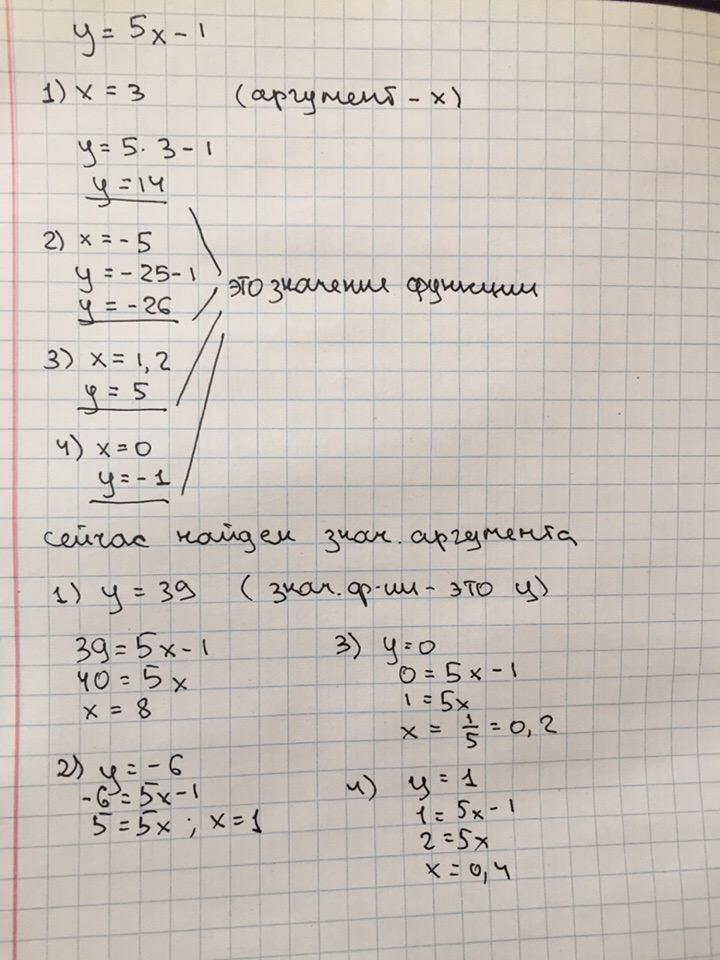 y = 5x - 1
1) x = 3 (аргумент - x)
y = 5 · 3 - 1
y = 14
2) x = - 5
y = - 25 - 1
y = - 26
это значение функции
3) x = 1,2
y = 5
4) x = 0
y = - 1
сейчас найдем знач. аргумента
1) y = 39 ( знач. ф-ии - это y)
39 = 5x - 1
40 = 5x
x = 8
2) y = - 6
-6 = 5x - 1
5 = 5x ; x = 1
3) y = 0
0 = 5x - 1
1 = 5x
x = 1/5 = 0,2
4) y = 1
1 = 5x - 1
2 = 5x
x = 0,4